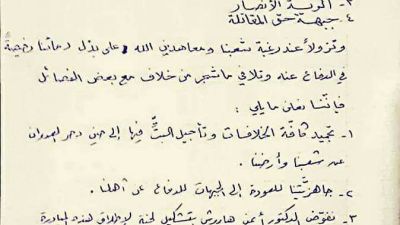 ٣- ألوية الأنصار
٤- جبهة حق المقاتلة
ونزولاً عند رغبة شعبنا ومعاهدين الله على بذل دمائنا رخيصةً
في الدفاع عنه وتلافي ما شجر من خلاف مع بعض الفصائل
فإننا نعلن ما يلي :
١- تجميد كافة الخلافات وتأجيل البتِّ فيها إلى حين دحر العدوان
عن شعبنا وأرضنا .
٢- جاهزيَّتنا للعودة إلى الجبهات للدفاع عن أهلنا .
٣- نفوّض الدكتور أيمن هاروش بتشكيل لجنة لإطلاق هذه المبادرة